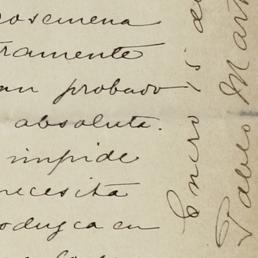 osemena
tramente
an probado
absoluta.
impide
necesita
oduzca en
Enero 15 de
Pablo Mart